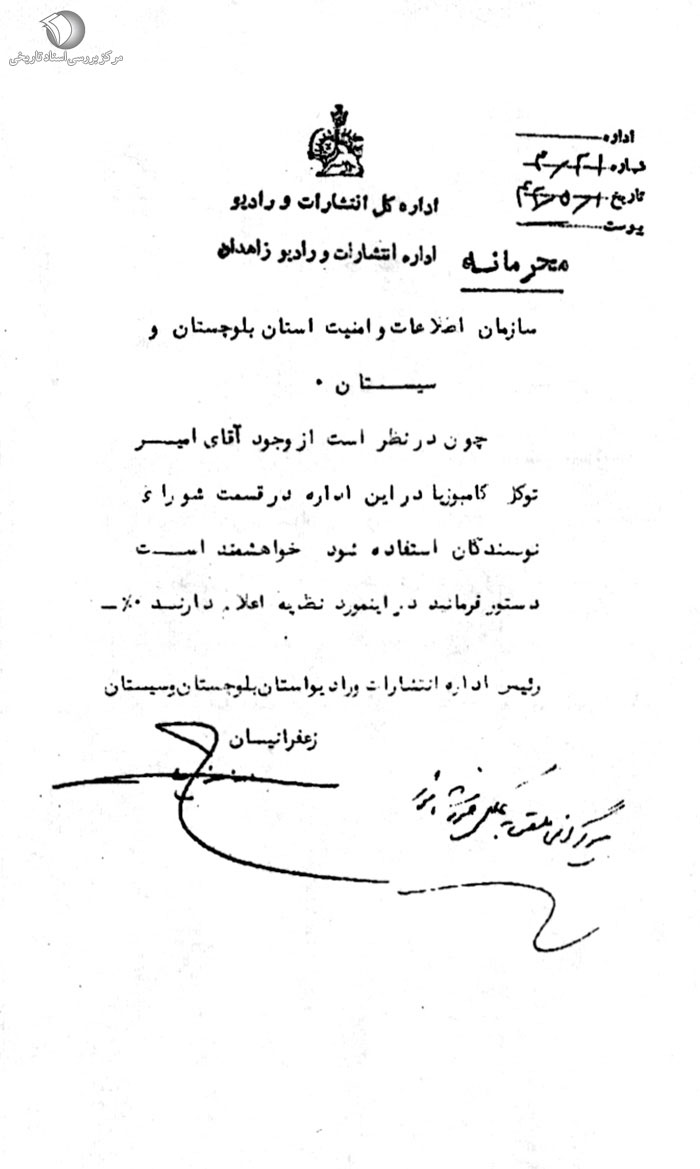 مرکز بررسی اسناد تاریخی
اداره
شماره
تاریخ
پیوست
اداره کل انتشارات و رادیو
اداره انتشارات و رادیو زاهدان
محرمانه
سازمان اطلاعات و امنیت استان بلوچستان و
سیستان .
چون در نظر است از وجود آقای امیر
توکل کامبوزیا در این اداره در قسمت شورای
نوسندگان استفاده شود خواهشمند است
دستور فرمائید در اینمورد نظریه اعلام دارند ٪ ـ
رئیس اداره انتشارات و رادیو استان بلوچستان و سیستان
زعفرانیسان